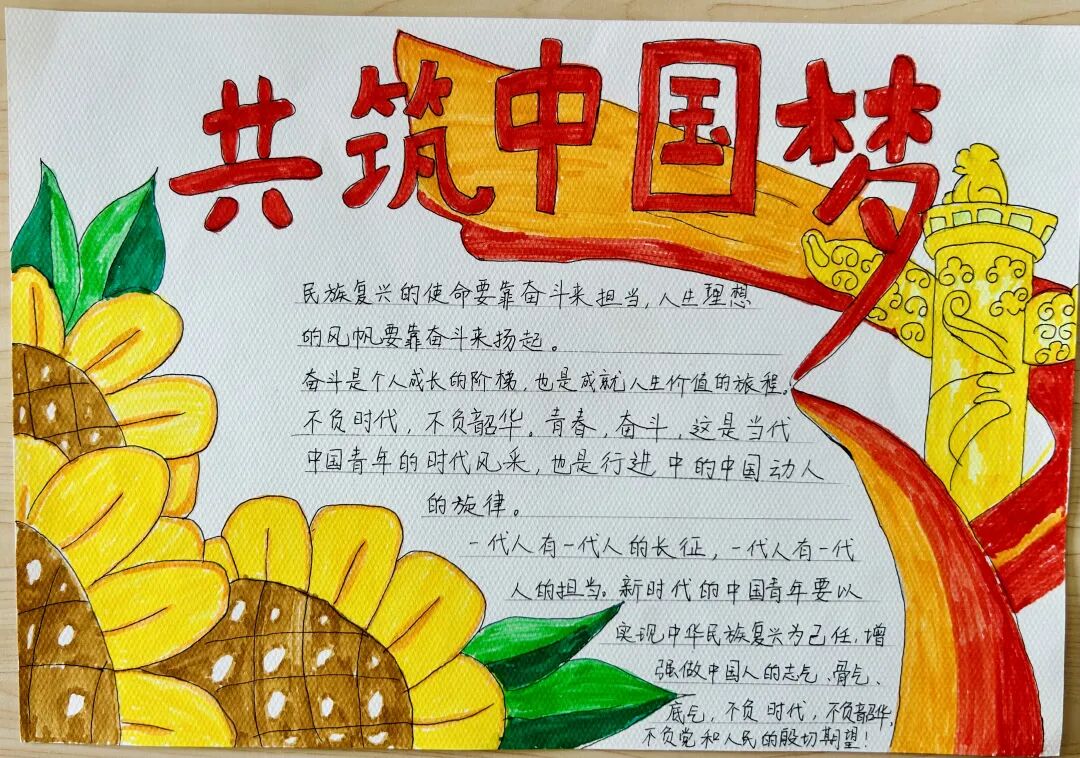 共筑中国梦
民族复兴的使命要靠奋斗来担当,人生理想
的风帆要靠奋斗来扬起。
奋斗是个人成长的阶梯,也是成就人生价值的旅程。
不负时代,不负韶华。青春,奋斗,这是当代
中国青年的时代风采,也是行进中的中国动人
的旋律。
一代人有一代人的长征,一代人有一代
人的担当。新时代的中国青年要以
实现中华民族复兴为己任,增
强做中国人的志气、骨气、
底气,不负时代,不负韶华,
不负党和人民的殷切期望!